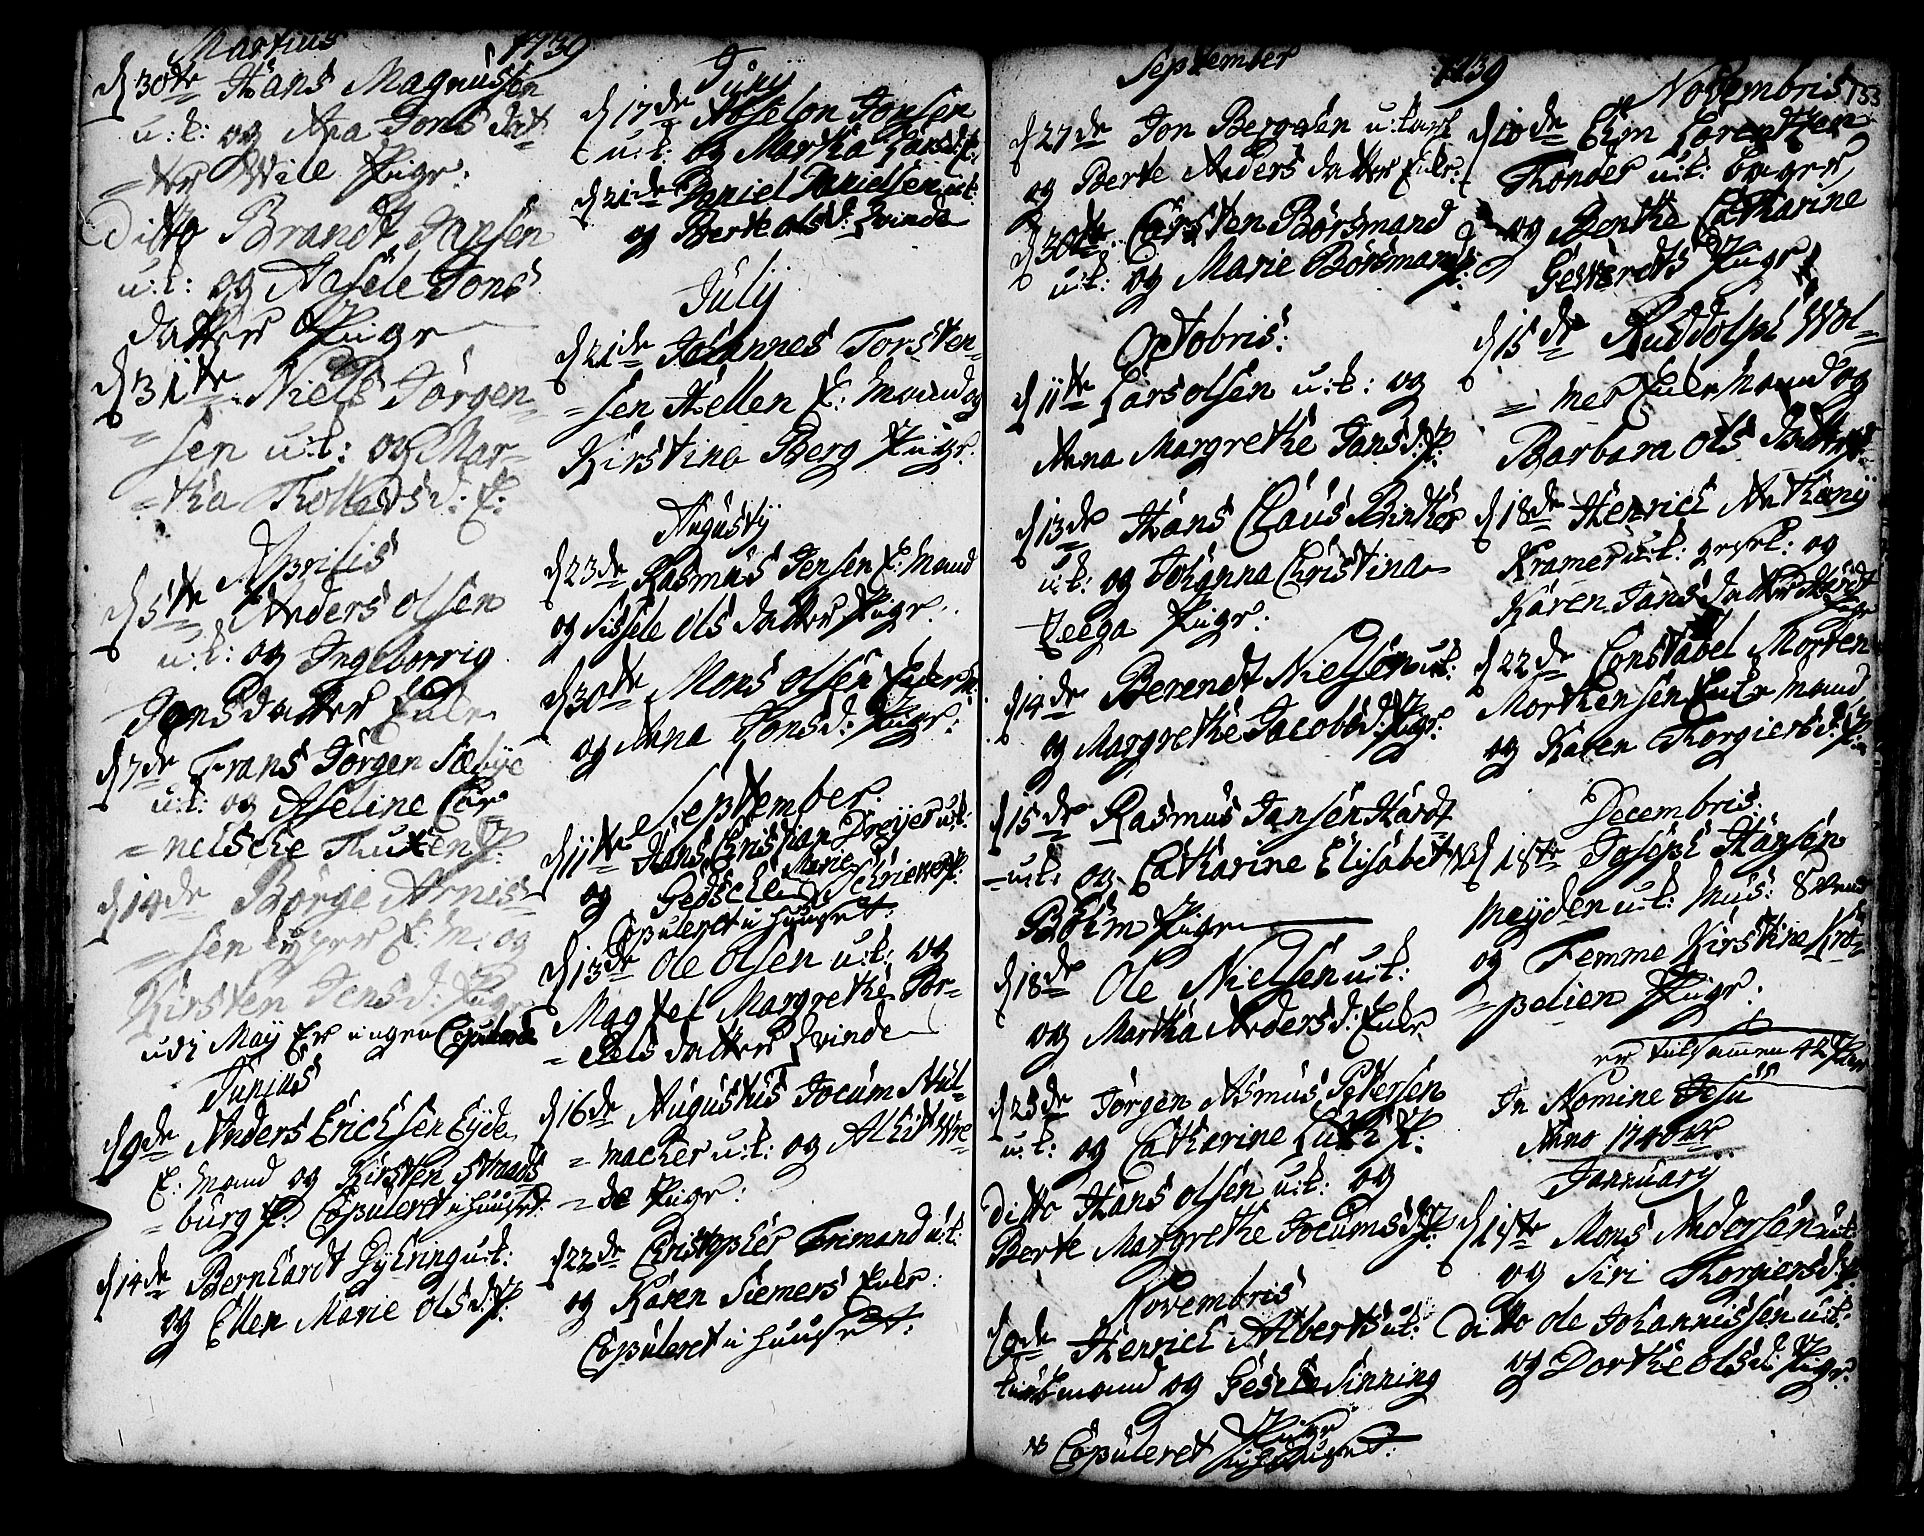 Martius 1739
d 30te Hans Magnusen
u:k: og Ana Jons dat
=ter Wile Piigr:
Ditto Brandt Jansen
u:k: og Aasele Jons
datter Piigr
d 31te Niels Jörgen=
=sen u:k: og Mar=
=tha Tollefsd: E:
Aprilis
d 5te Anders Olsen
u:k: og Ingeborrig
Jonsdatter Enke
d 7de Frans Jörgen
u:k: og Aseline Cor
=nelsche Thuxen P:
d 14de Börge Arnis=
=sen E: M: og
Kirsten Jensd: Piigr
udi Maÿ er ingen Copulerede
Junius
d 9de Anders Erichsen Eÿde
E: Mand og Kirsten Stras
=burg P: Copuleret i huuset
d 14de Bernhardt Dÿhring u:k:
og Ellen Marie Olsd: P:
Junÿ
d 17de Abselon Jonsen
u:k: og Martha Larsd: P:
d 21de Daniel Danielsen u:k:
og Berte Olsd: Qvinde
Julÿ
d 21de Johannes Torsten=
=sen Hellen E: Mand og
Kirstina Berg Piigr.
Augustÿ
d 23de Rasmus Jensen E: Mand
og Sissele Ols datter Piigr:
d 30te Mons Olsen Enkem:
og Anna Jonsd: Piigr:
September
d 11te Hans Christian Dreÿer u:k:
og Gedsche Marie Schriever P:
Copuleret i huuset:
d 13de Ole Olsen u:k: og
Magtel Margrethe Por=
=Pels datter Qvinde
d 16de Augustus Jocum Mül=
=macher u:k: og Alhit Wre
=de Piigr:
d 22de Christopher Frimand u:k:
og Karen Siemers Enke:
Copuleret i huuset:
September 1739
d 27de Jon Bergesen u:k:
og Berte Anders datter Enke:
d 30te Carsten Börsmand
u:k: og Marie Börsmands P:
Octobris:
d 11te Lars Olsen u:k: og
Anna Margrethe Jansd: P:
d 13de Hans Claus Brinker
u:k: og Johanna Christina
Zeega Piigr:
d 14de Berendt Nielsen u:k:
og Margrethe Jacobsd: Piigr:
d 15de Rasmus Jansen Hardt
u:k: og Catharine Elisabeth
Böhm Piigr
d 18de Ole Nielsen u:k:
og Martha Andersd: Enke
d 25de Jörgen Asmus Petersen
u:k: og Catharine P:
Ditto Hans Olsen u:k: og
Berte Margrethe Jocumsd: P:
Novembris
d 9de Henrich Alberts u:k:
mand og Gesche Sinning
Piigr
NB Copuleret i huuset:
Novembris 153
d 10de Elim Lorentzen
Tönder u:k:
og Benthe Catharine
Geverdts Piigr
d 15de Ruddolph Vol=
=mer Enkemand og
Barbara Ols datter P:
d 18de Henrich Anthonÿ
Kramer u:k: og
Karen Jans datter
Piigr
d 22de Constabel Morten
Morthensen Enkemand
og Karen Thorgiersd: P:
Decembris:
NB d 18te Joseph Hansen
Meÿden u:k:
og Femme Kirstine Kra=
=pelien Piigr:
er tilsammen 42 Par
In Nomine Jesu
Anno 1740
Januarÿ
d 1ste Mons Andersen u:k:
og Siri Thorgiersd: P:
Ditto Ole Johannissen u:k:
og Dorthe Olsd: Piigr: